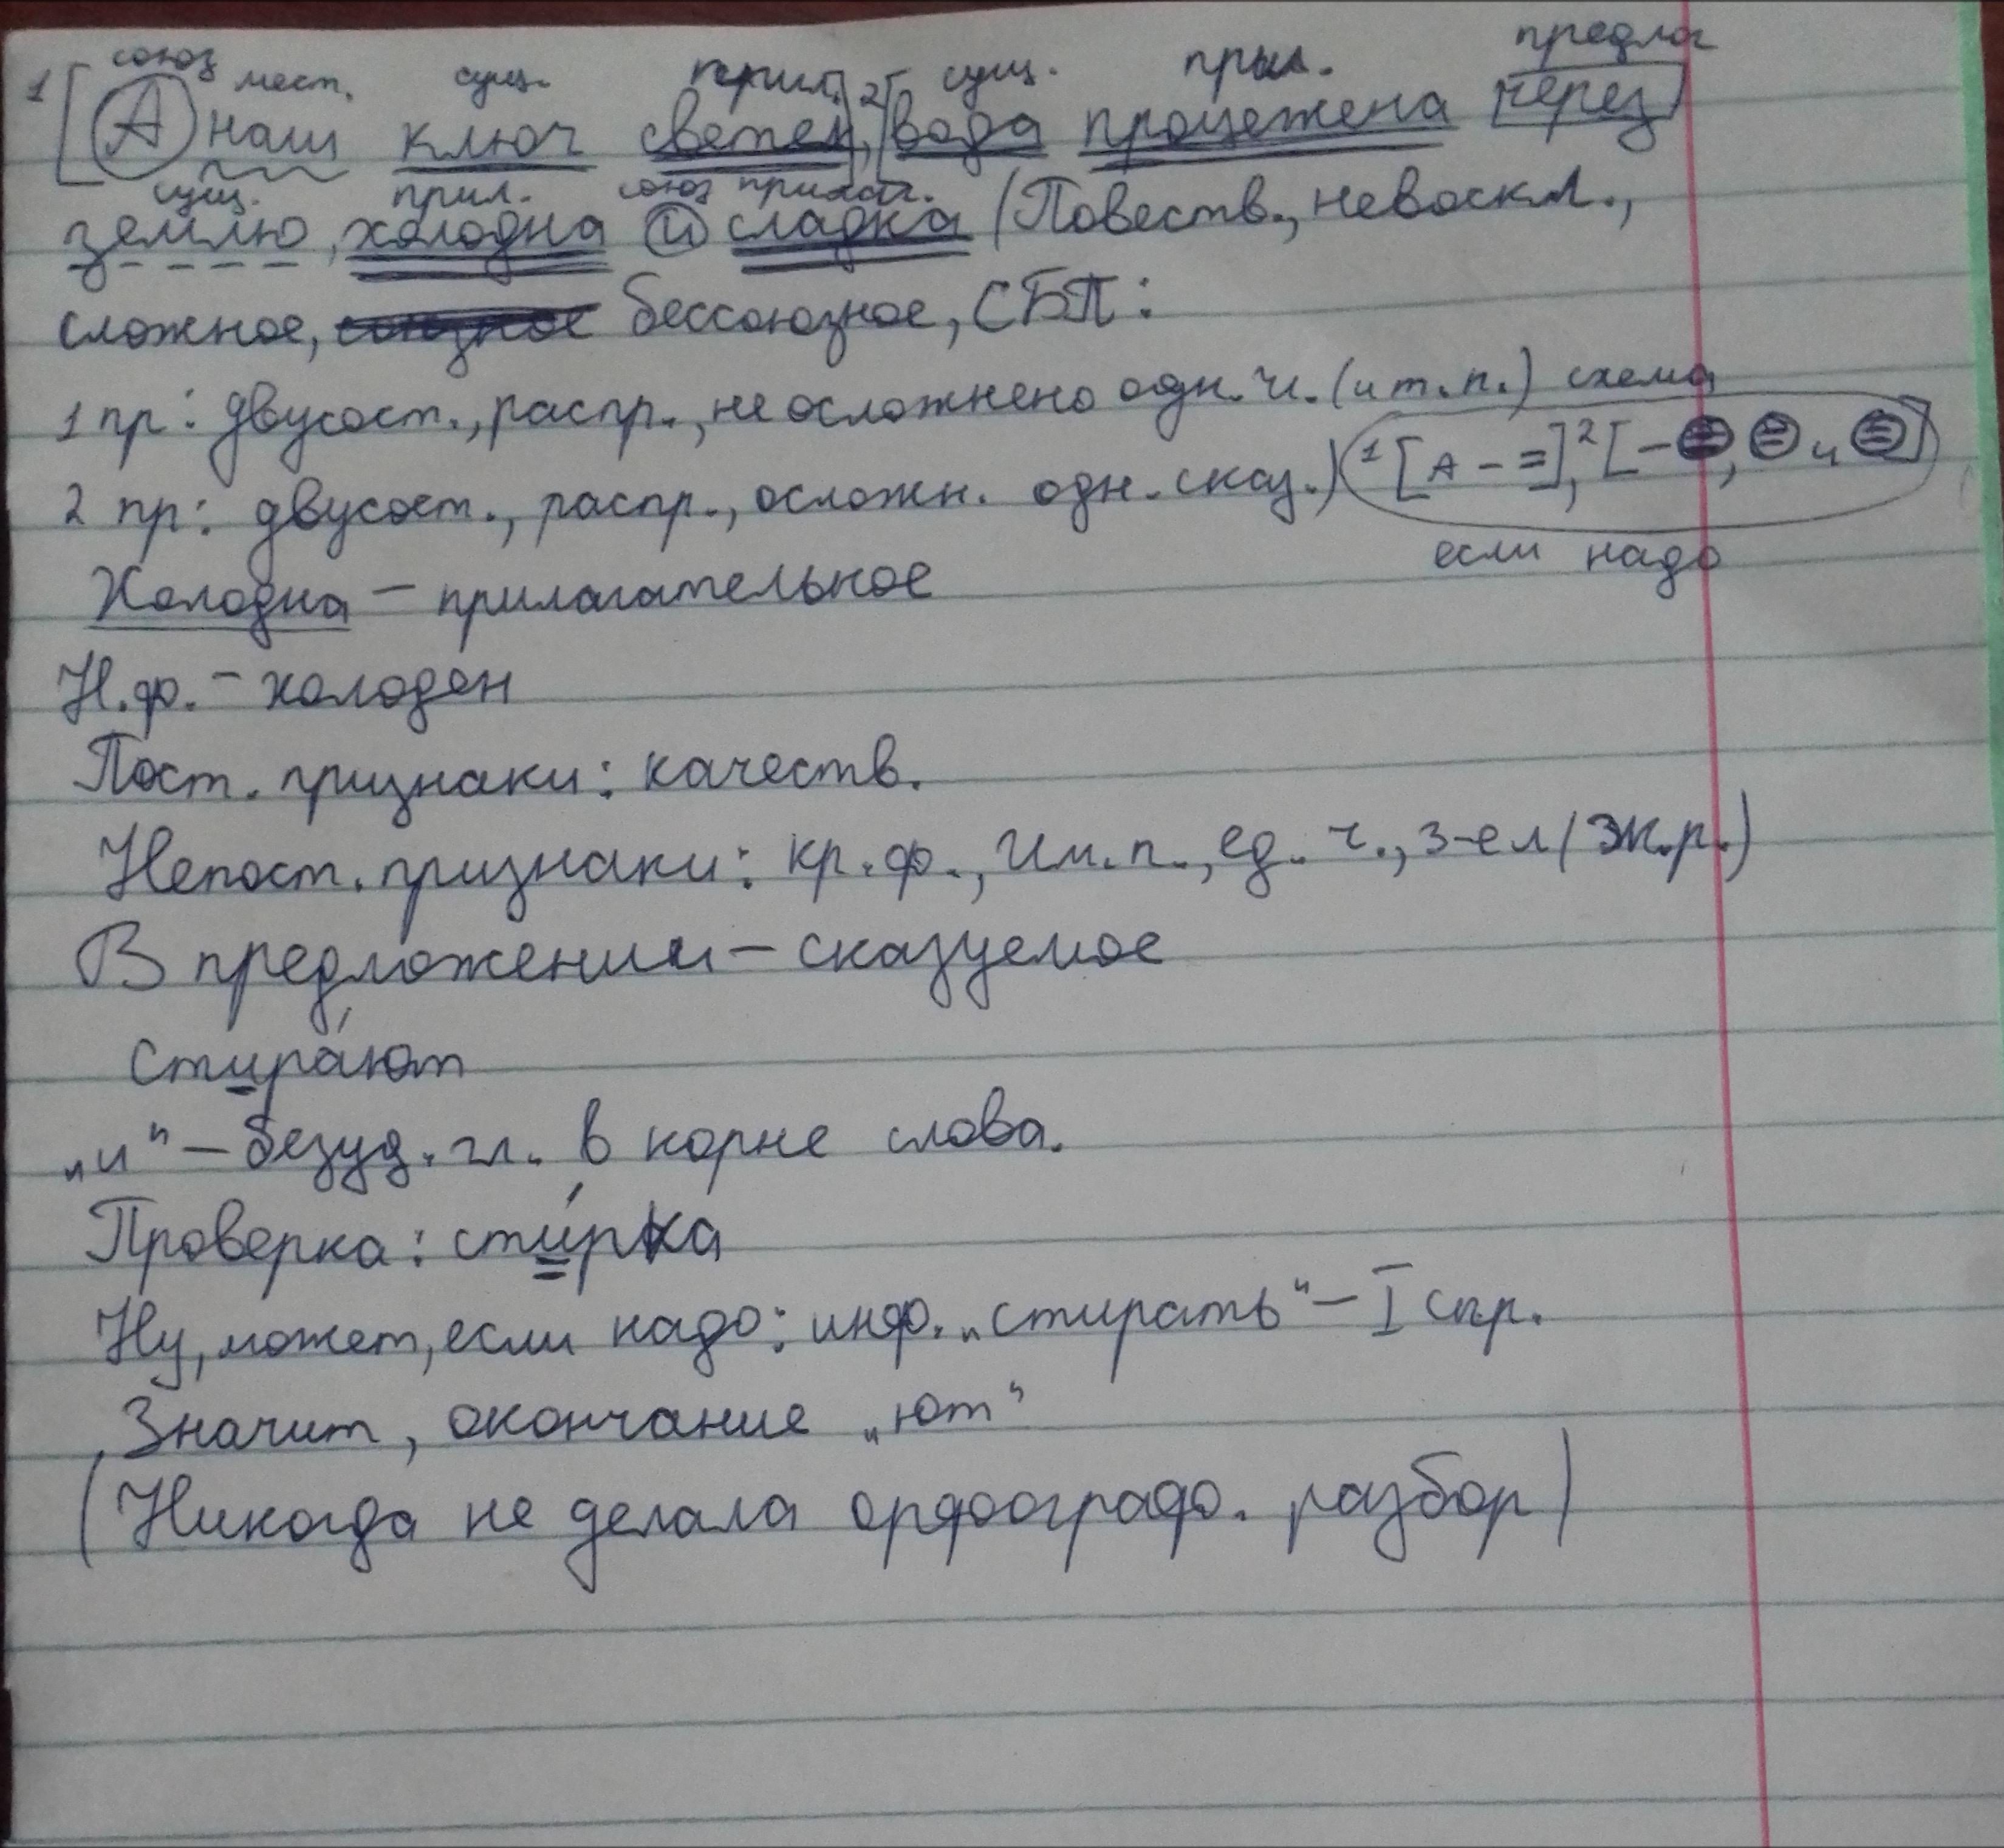 союз мест. сущ. прил. сущ. прил. предлог
1[А наш ключ светел], 2[вода процежена через
сущ. прил. союз прилаг.
землю, холодна и сладка (Повеств., невоскл.,
сложное, союзное бессоюзное, СБП:
1 пр: двусост., распр., не осложнено одн. ч. (и т. п.) схема
2 пр: двусост., распр., осложн. одн. сказ.) 1[А – =], 2[– =, = и =]
если надо
Холодна – прилагательное
Н.ф. – холоден
Пост. признаки: качеств.
Непост. признаки: кр. ф., Им. п., ед. ч., 3-е л (ж.р.)
В предложении – сказуемое
Стира́ют
„и" – безуд. гл. в корне слова.
Проверка: сти́рка
Ну, может, если надо: инф. „стирать" – I спр.
Значит, окончание „ют"
(Никогда не делала орфограф. разбор)